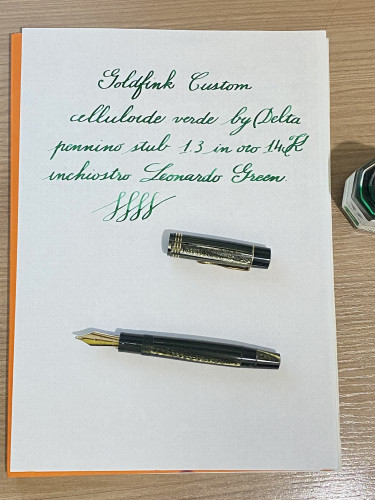 Goldfink Custom
celluloide verde by Delta
pennino stub 1.3 in oro 14K
inchiostro Leonardo Green